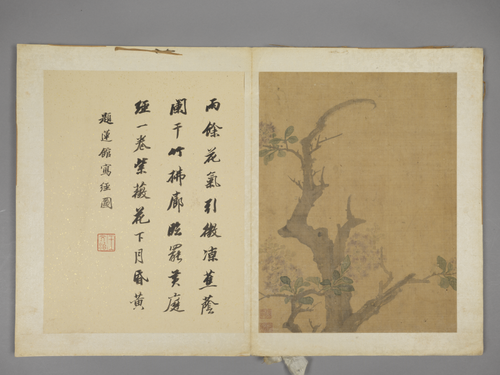 雨餘花氣引微凉蕉蔭
闌干竹拂廊臨罷黃庭
經一卷紫薇花下月昏黃
題蓮館寫經圖